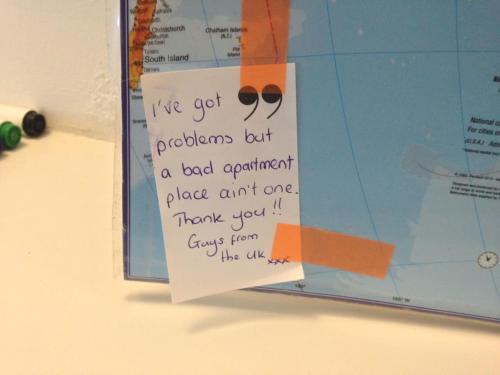 Chatham Islands
(N.Z.)
Christchurch
South Island
I've got 99
problems but
a bad apartment
place ain't one.
Thank you!!
Guys from
the UK xxx
National c
For cities o
(U.S.A.)
180°